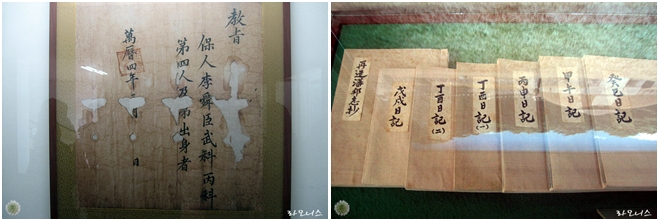 教旨
保人李舜臣武科丙科
第四人及第出身者
萬曆四年三月 日
라오니스
癸巳日記
甲午日記
丙申日記
丁酉日記(一)
丁酉日記(二)
戊戌日記
再造藩邦志抄
라오니스